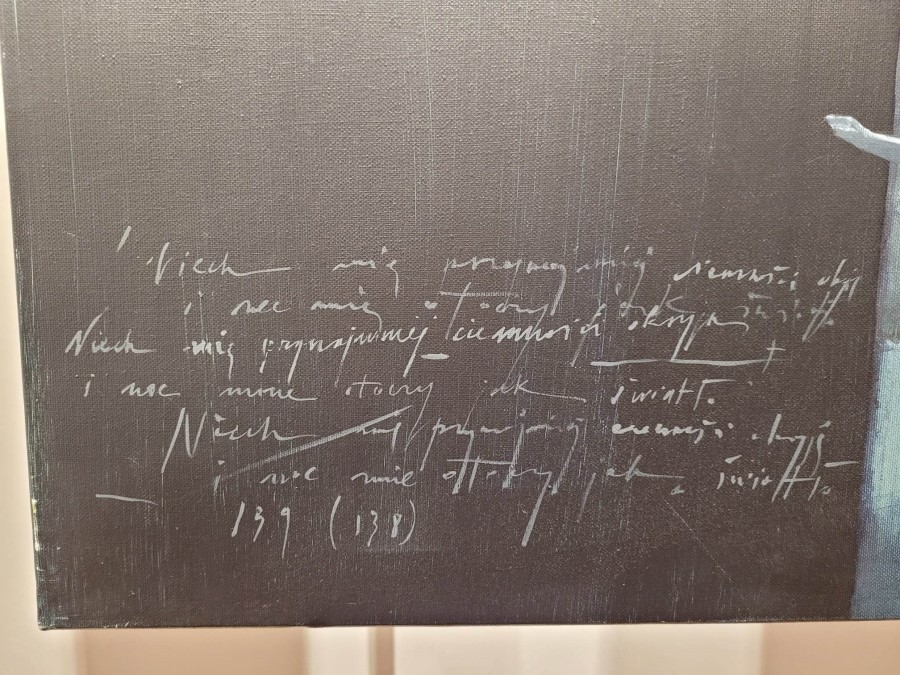 Niech mię przynajmniej ciemności okryją
i noc mnie otoczy jak światło
Niech mię przynajmniej ciemności okryją
i noc mnie otoczy jak światło
Niech mię przynajmniej ciemności okryją
i noc mnie otoczy jak światło
139 (138)